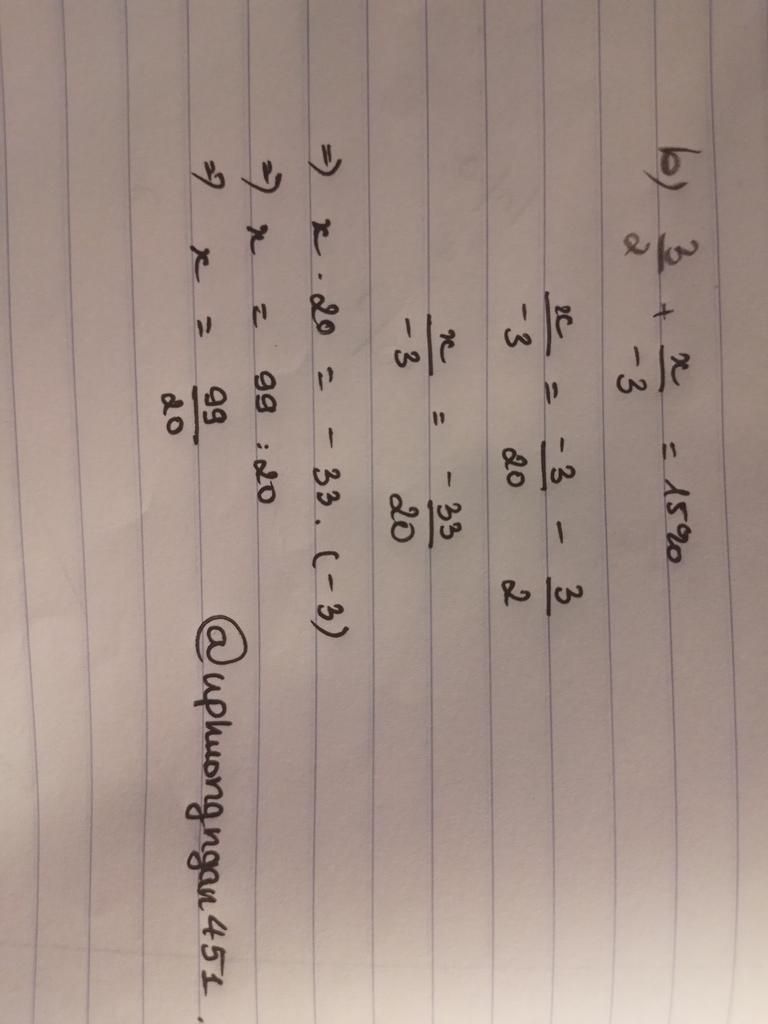 b) 3/2 + x/-3 = 15%
x/-3 = -3/20 - 3/2
x/-3 = -33/20
=> x . 20 = -33 . (-3)
=> x = 99 : 20
=> x = 99/20
@uphuongngan451.